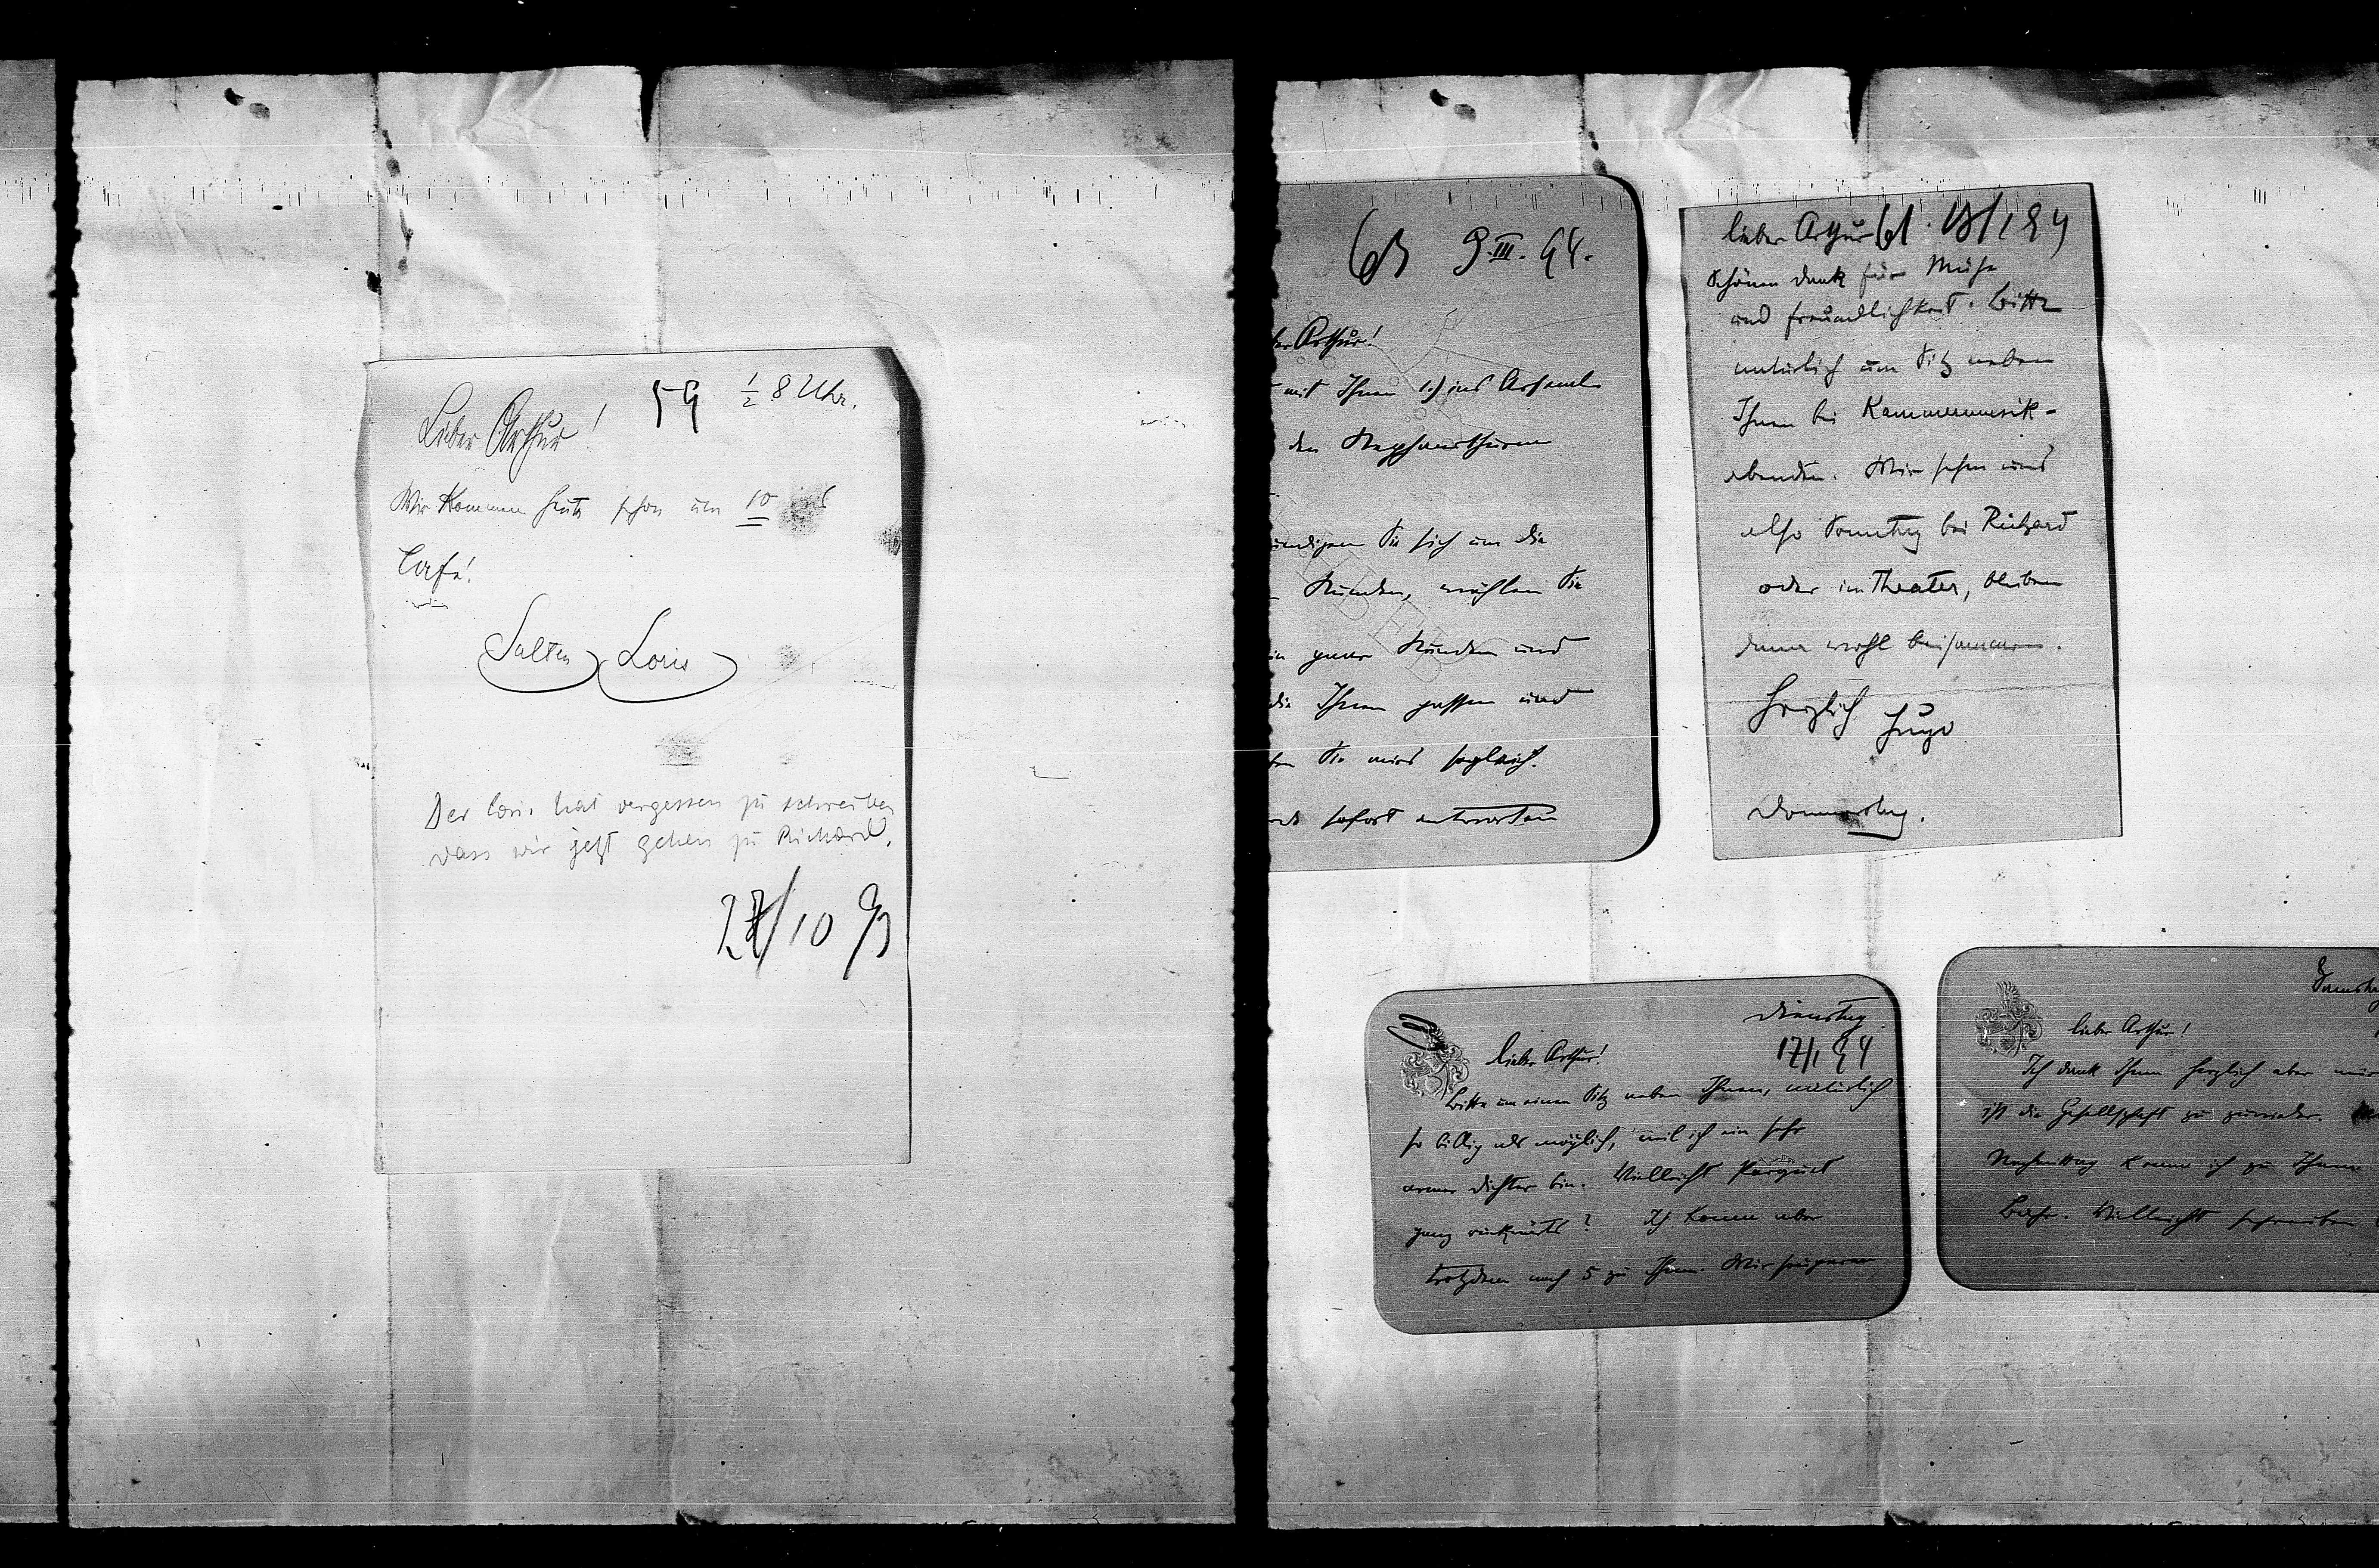 59 ½ 8 Uhr.
Lieber Arthur!
Wir kommen heute schon um 10 ins
Café!
Salten Loris
Der Loris hat vergessen zu schreiben
dass wir jetzt gehen zu Richard.
27/10 93
63 9.III.94.
ber Arthur!
mit Ihnen 1.) ins Arsenal
den Stephansthurm
undigen Sie sich um die
Stunden, wählen Sie
in paar Stunden und
die Ihnen passen und
ben Sie mirs sogleich.
sofort antworten
lieber Arthur 61 18/1 94
Schönen Dank für Mühe
und Freundlichkeit. Bitte
natürlich um Sitz neben
Ihnen bei Kammermusik-
abenden. Wir sehen uns
also Sonntag bei Richard
oder im Theater, bleiben
dann wohl beisammen.
Herzlich Hugo
Donnerstag.
Dienstag
17/1 94
Lieber Arthur!
Bitte um einen Sitz neben Ihnen, natürlich
so billig als möglich, weil ich ein sehr
armer Dichter bin. Vielleicht Parquet
ganz rückwärts? Ich komme aber
trotzdem nach 5 zu Ihnen. Wir soupieren
Samstag
lieber Arthur!
Ich dank Ihnen herzlich aber mir
ist die Gesellschaft zu zuwider.
Nachmittag komm ich zu Ihnen
Vielleicht schreiben